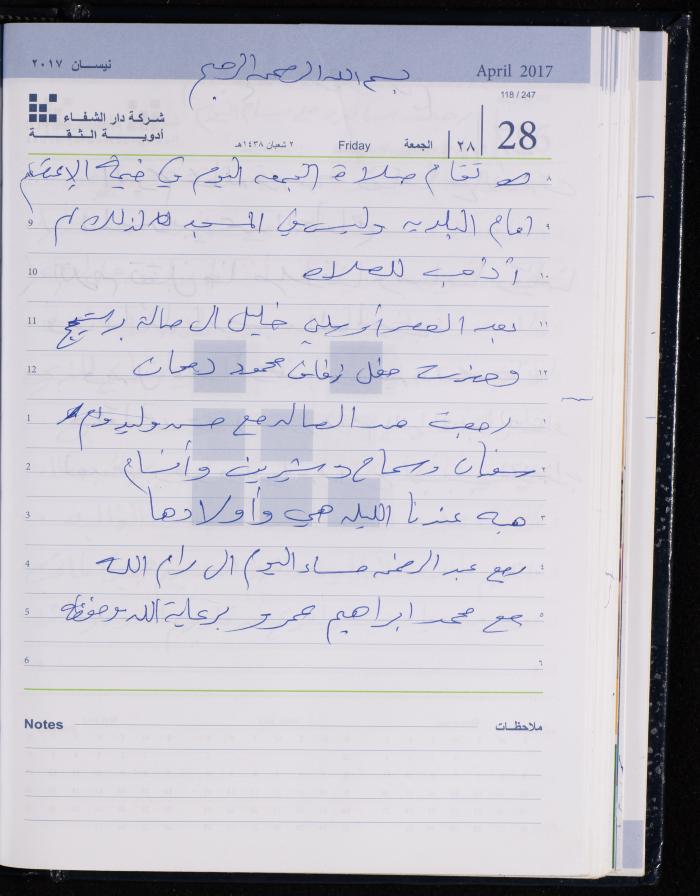 نيسان ٢٠١٧
بسم الله الرحمن الرحيم
April 2017
118 / 247
شركة دار الشفاء
أدوية الثقة
٢ شعبان ١٤٣٨هـ
Friday
الجمعة
٢٨
28
٨ تقام صلاة الجمعه اليوم في خيمة الإعتصام
9 امام البلديه وليس في المسجد لذلك لم ٩
10 أذهب للصلاه ١٠
11 بعد العصر أوصلني خليل ال صالة ١١
12 وحضرت حفل زفاف محمود ١٢
1 رجعت من الصاله مع حسن وليد
2 سفيان وسماح وشيرين وأنسام ٢
3 هبه عندنا الليله هي وأولادها ٣
4 رجع عبد الرحمن مساء اليوم ال رام الله ٤
5 مع محمد ابراهيم عمرو برعاية الله وحفظه ٥
6 ٦
Notes ملاحظات